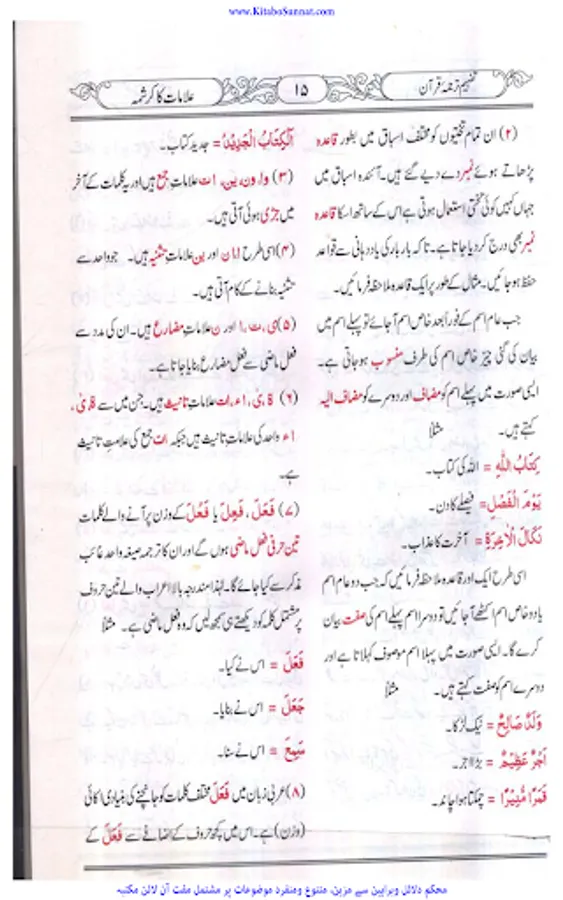 www.KitaboSunnat.com
تفہیم ترجمۂ قرآن
۱۵
علامات کا کرشمہ
(۲) ان تمام تختیوں کو مختلف اسباق میں بطور قاعدہ
پڑھاتے ہوئے نمبر دے دیے گئے ہیں۔ آئندہ اسباق میں
جہاں کہیں کوئی تختی استعمال ہوتی ہے اس کے ساتھ اسکا قاعدہ
نمبر بھی درج کر دیا جاتا ہے۔ تاکہ بار بار کی یاد دہانی سے قواعد
حفظ ہو جائیں۔ مثال کے طور پر ایک قاعدہ ملاحظہ فرمائیں۔
جب عام اسم کے فوراً بعد خاص اسم آ جائے تو پہلے اسم میں
بیان کی گئی چیز خاص اسم کی طرف منسوب ہو جاتی ہے۔
ایسی صورت میں پہلے اسم کو مضاف اور دوسرے کو مضاف الیہ
کہتے ہیں۔ مثلاً
كِتَابُ اللّٰهِ = اللہ کی کتاب۔
يَوْمَ الْفَصْلِ = فیصلے کا دن۔
نَكَالَ الْاٰخِرَةِ = آخرت کا عذاب۔
اسی طرح ایک اور قاعدہ ملاحظہ فرمائیں کہ جب دو عام اسم
یا دو خاص اسم اکٹھے آ جائیں تو دوسرا اسم پہلے اسم کی صفت بیان
کرے گا۔ ایسی صورت میں پہلا اسم موصوف کہلاتا ہے اور
دوسرے اسم کو صفت کہتے ہیں۔ مثلاً
وَلَدٌ صَالِحٌ = نیک لڑکا۔
اَجْرٌ عَظِيْمٌ = بڑا اجر۔
قَمَرًا مُّنِيْرًا = چمکتا ہوا چاند۔
اَلْكِتَابُ الْجَدِيْدُ = جدید کتاب۔
(۳) وا، ون، ین، ات علاماتِ جمع ہیں اور یہ کلمات کے آخر
میں جڑی ہوئی آتی ہیں۔
(۴) اسی طرح ا، ان اور ین علاماتِ تثنیہ ہیں۔ جو واحد سے
تثنیہ بنانے کے کام آتی ہیں۔
(۵) ی، ت، ا اور ن علاماتِ مضارع ہیں۔ ان کی مدد سے
فعل ماضی سے فعل مضارع بنایا جاتا ہے۔
(۶) ة، ی، اء، ات علاماتِ تانیث ہیں۔ جن میں سے ة، ی،
اء واحد کی علاماتِ تانیث ہیں جبکہ ات جمع کی علامتِ تانیث
ہے۔
(۷) فَعَلَ، فَعِلَ یا فَعُلَ کے وزن پر آنے والے کلمات
تین حرفی فعل ماضی ہوں گے اور ان کا ترجمہ صیغہ واحد غائب
مذکر سے کیا جائے گا۔ لہٰذا مندرجہ بالا اعراب والے تین حروف
پر مشتمل کلمہ کو دیکھتے ہی سمجھ لیں کہ وہ فعل ماضی ہے۔ مثلاً
فَعَلَ = اس نے کیا۔
جَعَلَ = اس نے بنایا۔
سَمِعَ = اس نے سنا۔
(۸) عربی زبان میں فَعَلَ مختلف کلمات کو جانچنے کی بنیادی اکائی
(وزن) ہے۔ اس میں کچھ حروف کے اضافے سے فَعَلَ کے
محکم دلائل وبراہین سے مزین، متنوع ومنفرد موضوعات پر مشتمل مفت آن لائن مکتبہ